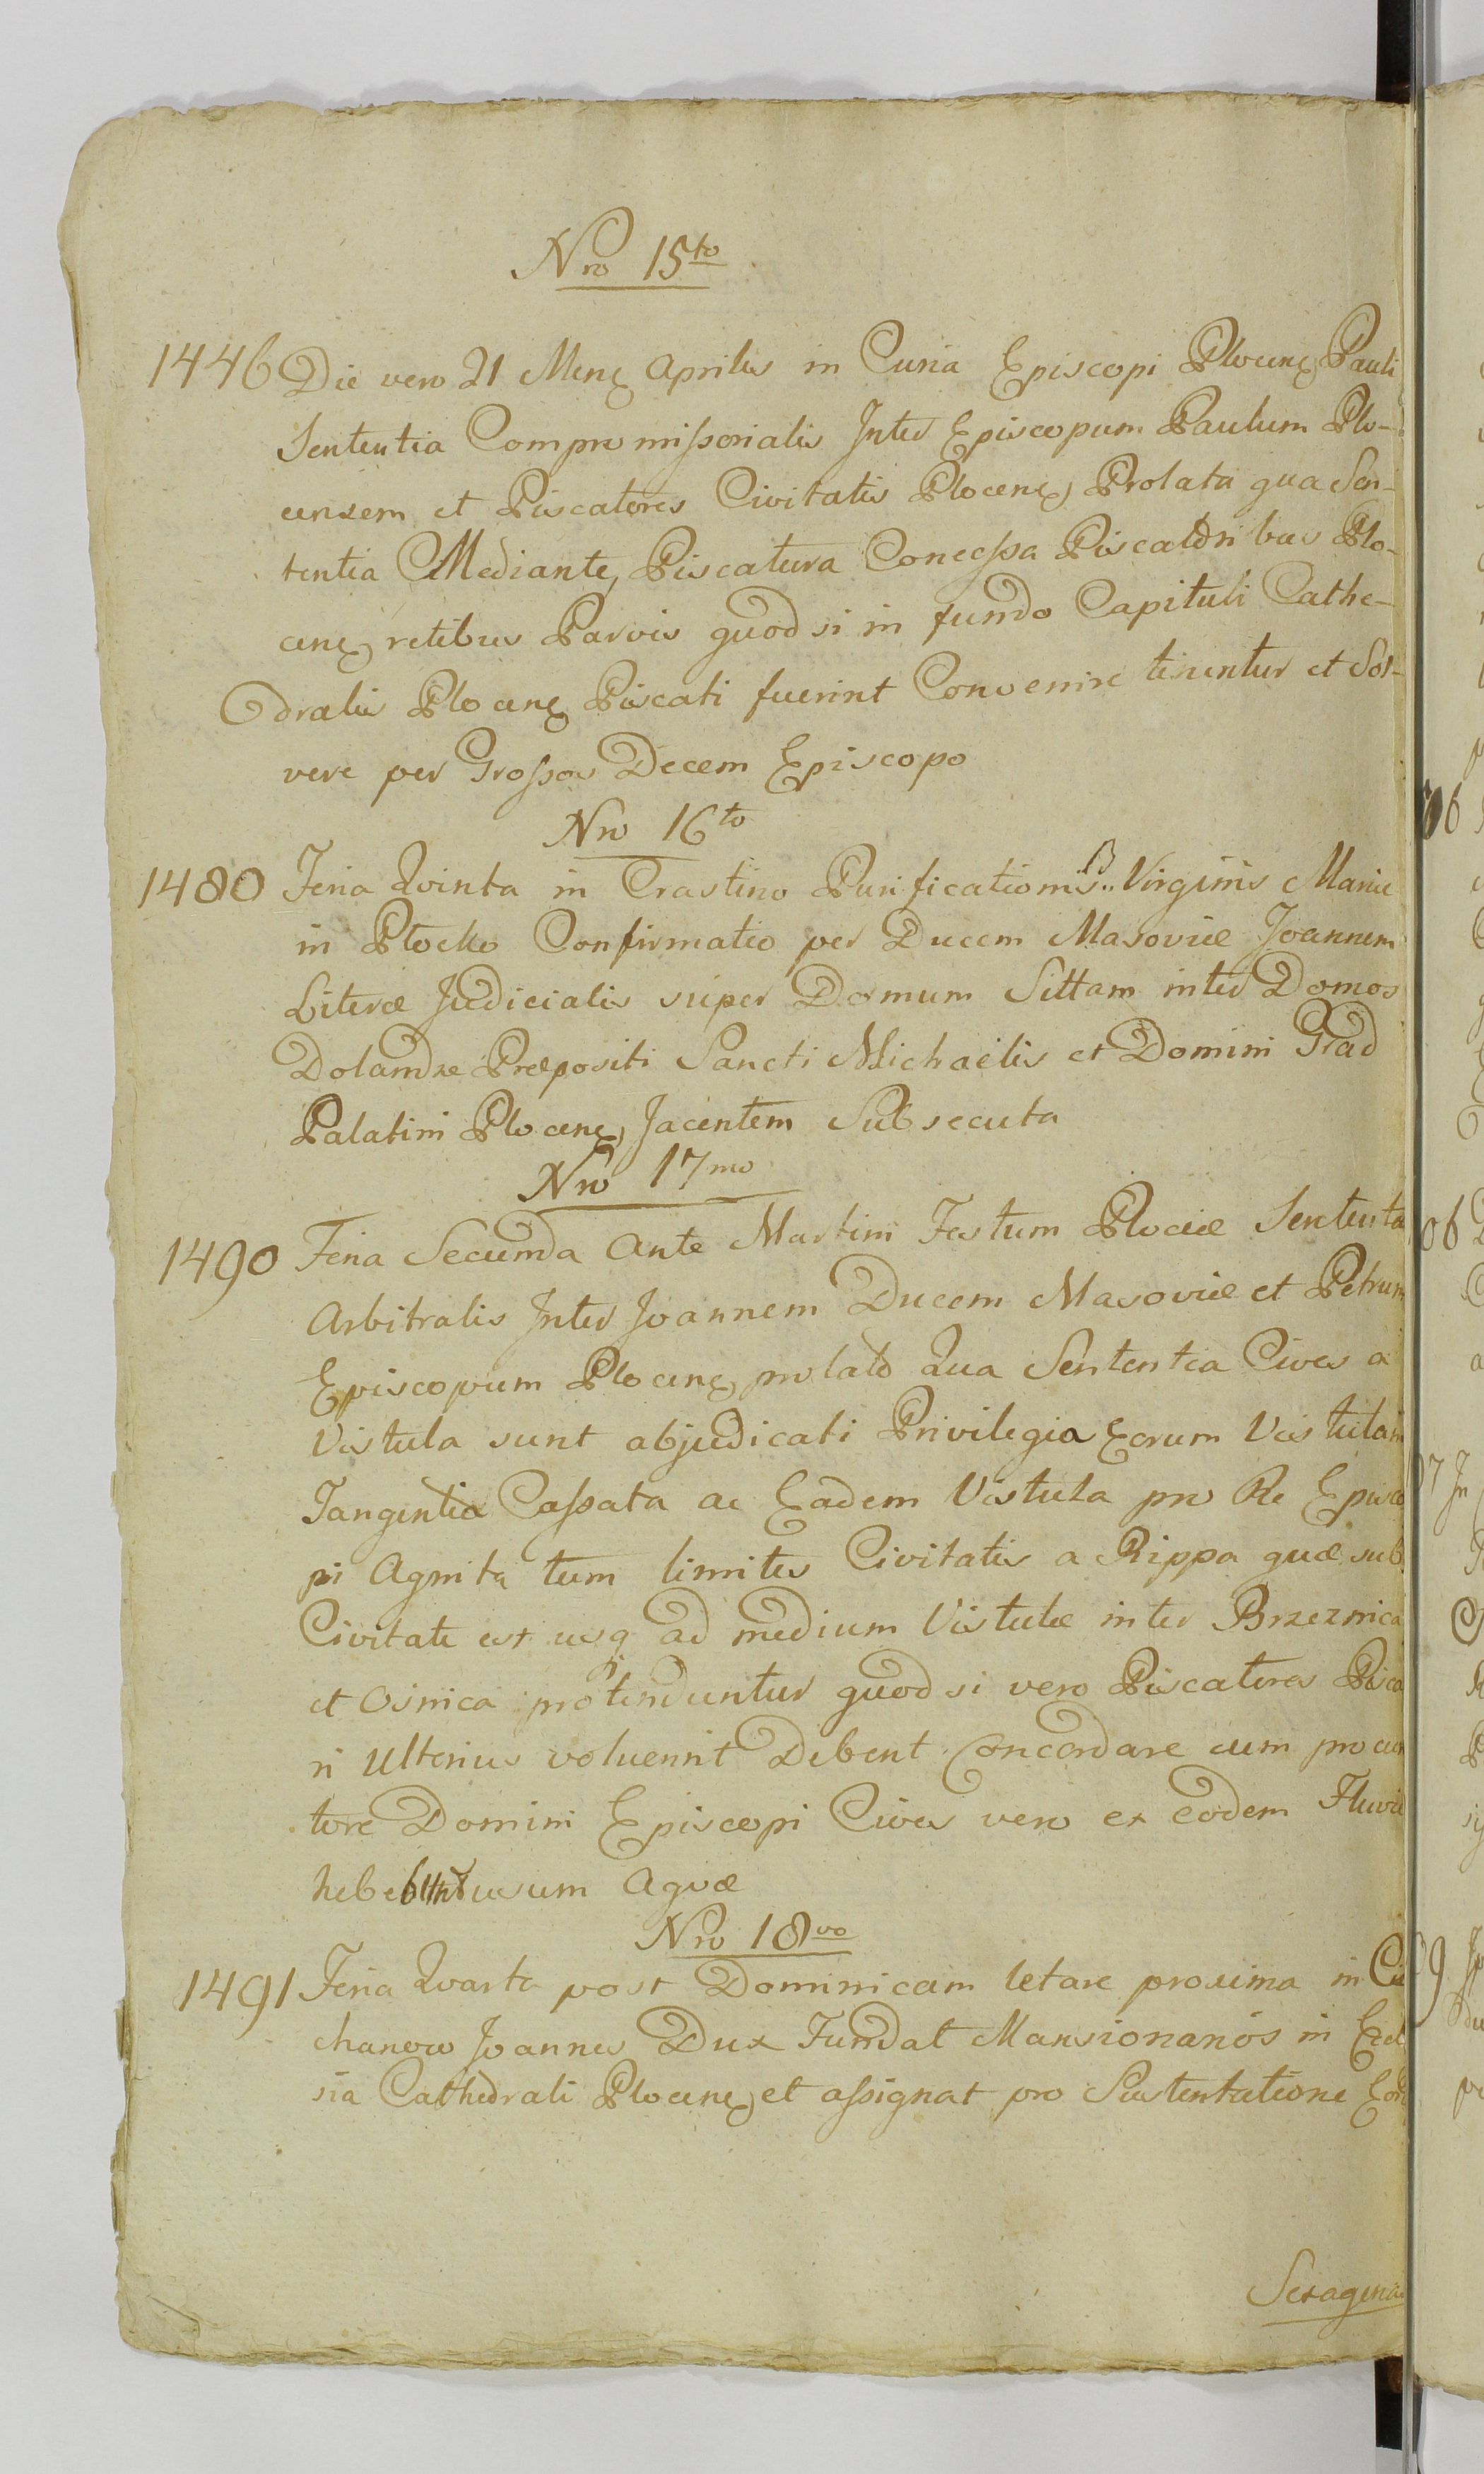 Nro 15to
1446 Die vero 21 Mens Aprilis in Curia Episcopi Plocens Pauli
Sententia Compromissorialis Inter Episcopum Paulum Plo-
censem et Piscatores Civitatis Plocens Prolata qua Sen-
tentia Mediante, Piscatura Concessa Piscatoribus Plo-
cens retibus Parvis quod si in fundo Capituli Cathe-
dralis Plocens Piscati fuerint Convenire tenentur et Sol-
vere per Grossos Decem Episcopo
Nro 16to
1480 Feria Qvinta in Crastino Purificationis B. Virginis Mariæ
in Plocko Confirmatio per Ducem Masoviæ Joannem
Literæ Judicialis super Domum Sittam inter Domos
Dolandze Præpositi Sancti Michaelis et Domini Grad
Palatini Plocens, Jacentem Subsecuta
Nro 17mo
1490 Feria Secunda Ante Martini Festum Plociæ Sententa
Arbitralis Inter Joannem Ducem Masoviæ et Petrum
Episcopum Plocens, prolato Qua Sententia Cives a
Vistula sunt abjudicati Privilegia Eorum Vistulam
Tangentia Cassata ac Eadem Vistula pro Re Episco
pi Agnita tum limites Civitatis a Rippa quæ sub
Civitate est usq ad medium Vistulæ inter Brzeznica
et Osnica protenduntur quod si vero Piscatores Pisca
ri Ulterius voluerint Debent Concordare cum procura
tore Domini Episcopi Cives vero ex eodem Fluvio
hebebunt usum Aqvæ
Nro 18vo
1491 Feria Qvarta post Dominicam letare proxima in Cie
chanow Joannes Dux Fundat Mansionarios in Eccle
sia Cathedrali Plocens, et assignat pro Sustentatione Eor
Sexagena